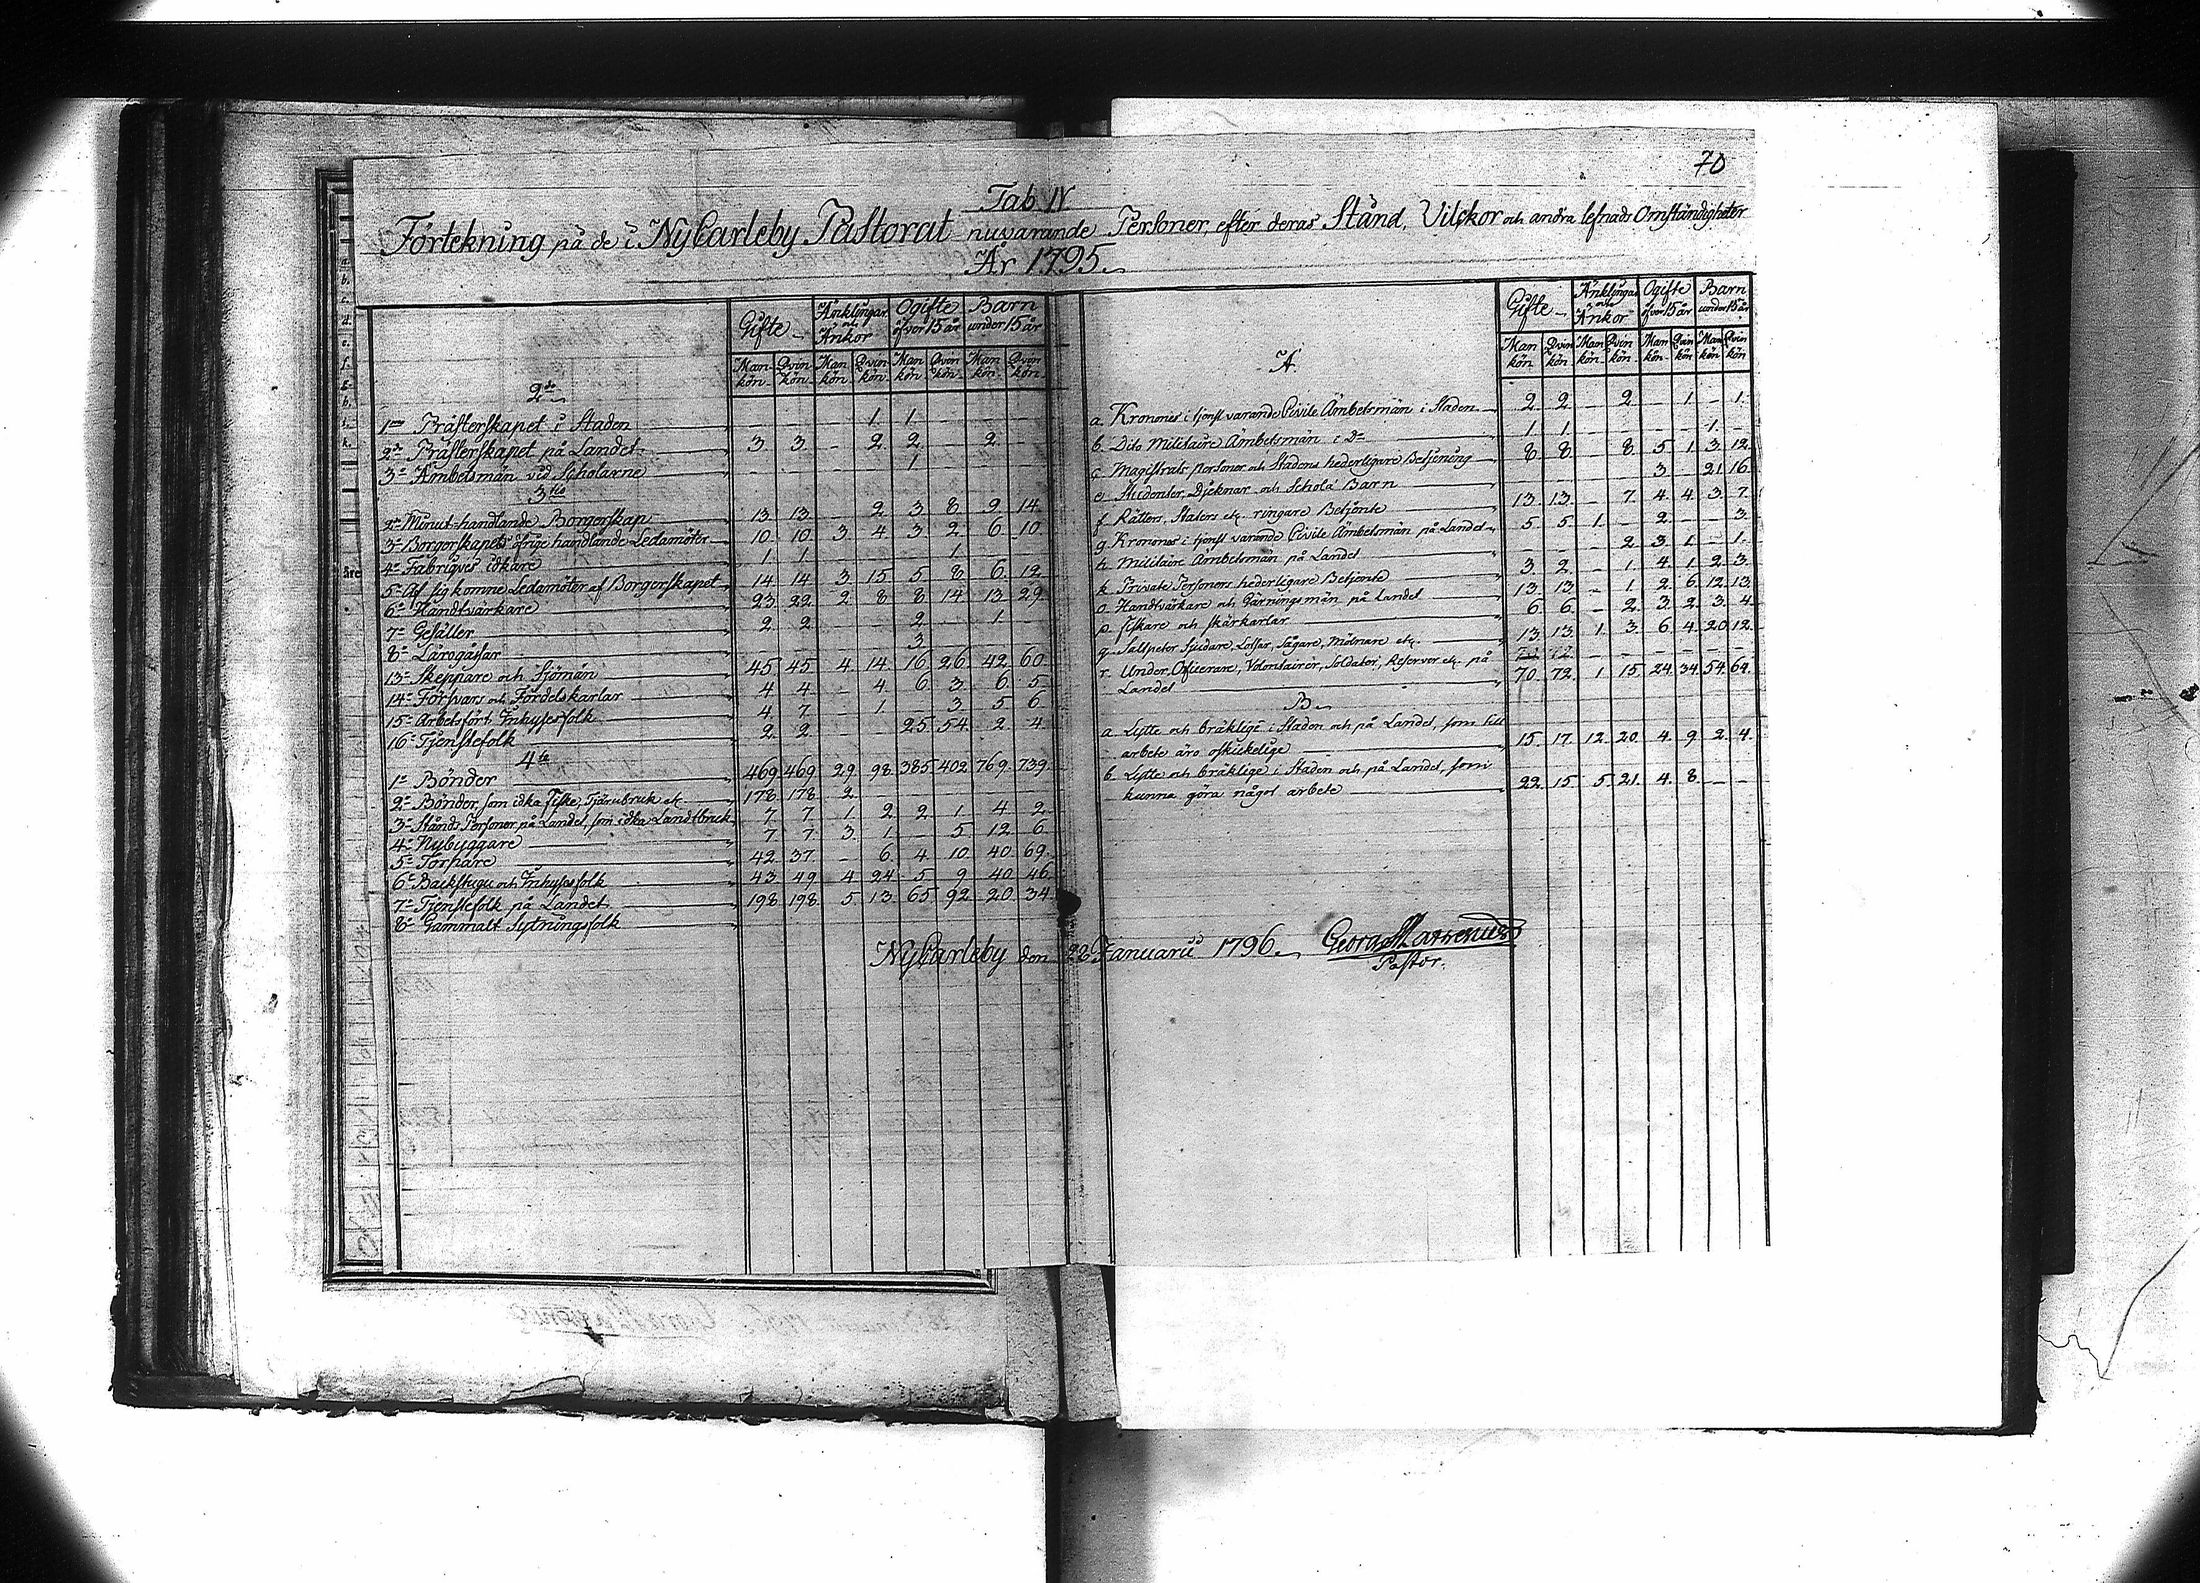 70
Tab IV
Förtekning på de i NyCarleby Pastorat nuvarande Personer, efter deras Stånd, Vilckor och andra lefnads Omständigheter
År 1795.
Gifte Änklingar och Änkor Ogifte öfver 15 år Barn under 15 år
Man kön Qvin kön Man kön Qvin kön Man kön Qvin kön Man kön Qvin kön
2do
1mo Prästerskapet i Staden - - - 1 1 - - -
2o Prästerskapet på Landet 3 3 - 2 2 - 2 -
3o Ämbetsmän vid Scholarne - - - - 1 - - -
3tio
2o Minut-handlande Borgerskap 13 13 - 2 3 8 9 14
3o Borgerskapets öfrige handlande Ledamöter 10 10 3 4 3 2 6 10
4o Fabriqves idkare 1 1 - - - 1 - -
5o Af sig komne Ledamöter af Borgerskapet 14 14 3 15 5 8 6 12
6o Handtvärkare 23 22 2 8 8 14 13 29
7o Gesäller 2 2 - - 2 - 1 -
8o Lärogåssar - - - - 3 - - -
13o Skeppare och Sjömän 45 45 4 14 16 26 42 60
14o Försvars och Fördelskarlar 4 4 - 4 6 3 6 5
15o Arbetsfört Inhysesfolk 4 7 - 1 - 3 5 6
16o Tjenstefolk 2 2 - - 25 54 2 4
4to
1o Bönder 469 469 29 98 385 402 769 739
2o Bönder, som idka Fiske, Tjärubruk etc 178 178 2
3o Stånds Personer på Landet, som idka Landtbruk 7 7 1 2 2 1 4 2
4o Nybyggare 7 7 3 1 - 5 12 6
5o Torpare 42 37 - 6 4 10 40 69
6o Backstugu och Inhysesfolk 43 49 4 24 5 9 40 46
7o Tjenstefolk på Landet 198 198 5 13 65 92 20 34
8o Gammalt Sytningsfolk
Gifte Änklingar och Änkor Ogifte öfver 15 år Barn under 15 år
Man kön Qvin kön Man kön Qvin kön Man kön Qvin kön Man kön Qvin kön
A
a Kronones i tjenst varande Civile Ämbetsmän i Staden 2 2 - 2 - 1 - 1
b Dito Militaire Ämbetsmän i Do 1 1 - - - - 1 -
c Magistrats personer och Stadens hederligare Betjening 8 8 - 8 5 1 3 12
e Studenter, Djeknar och Schola Barn - - - - 3 - 21 16
f Rätters, Staters etc. ringare Betjente 13 13 - 7 4 4 3 7
g Kronones i tjenst varande Civile Ämbetsmän på Landet 5 5 1 - 2 - - 3
h Militaire Ämbetsmän på Landet - - - 2 3 1 - 1
k Private Personers hederligare Betjente 3 2 - 1 4 1 2 3
o Handtvärkare och Gärningsmän på Landet 13 13 - 1 2 6 12 13
p Fiskare och Skärkarlar 6 6 - 2 3 2 3 4
q Saltpeter Sjudare, Lotsar, Sågare, Mölnare etc. 13 13 1 3 6 4 20 12
r Under Officerare, Volontairer, Soldater, Reserver etc. på
Landet 70 72 1 15 24 34 54 64
B
a Lytte och bräklige i Staden och på Landet, som till
arbete äro oskickelige 15 17 12 20 4 9 2 4
b Lytte och bräklige i Staden och på Landet, som
kunna göra något arbete 22 15 5 21 4 8 - -
NyCarleby den 28 Januarii 1796.
Pastor.